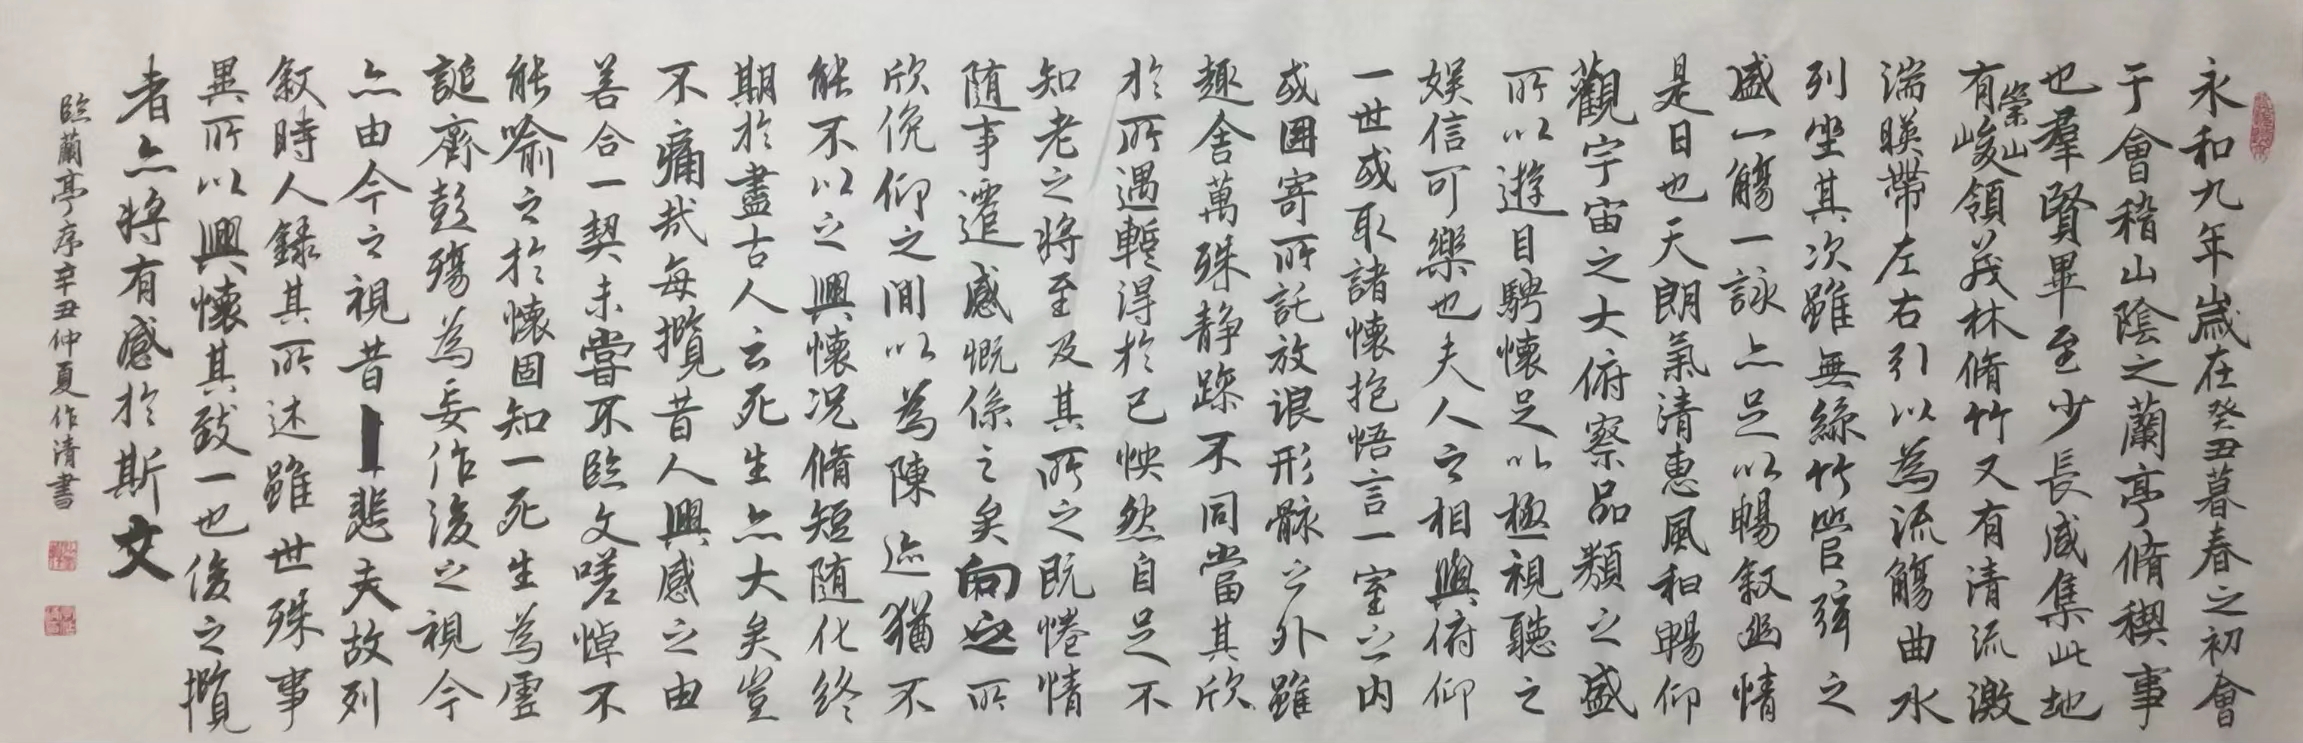 永和九年歲在癸丑暮春之初會
于會稽山陰之蘭亭脩稧事
也羣賢畢至少長咸集此地
有崇山峻領茂林脩竹又有清流激
湍暎帶左右引以為流觴曲水
列坐其次雖無絲竹管弦之
盛一觴一詠亦足以暢敘幽情
是日也天朗氣清惠風和暢仰
觀宇宙之大俯察品類之盛
所以遊目騁懷足以極視聽之
娛信可樂也夫人之相與俯仰
一世或取諸懷抱悟言一室之內
或因寄所託放浪形骸之外雖
趣舍萬殊静躁不同當其欣
於所遇蹔得於己怏然自足不
知老之將至及其所之既惓情
随事遷感慨係之矣向之所
欣俛仰之閒以為陳迹猶不
能不以之興懷況脩短随化終
期於盡古人云死生亦大矣豈
不痛哉每攬昔人興感之由
若合一契未嘗不臨文嗟悼不
能喻之於懷固知一死生為虛
誕齊彭殤為妄作後之視今
亦由今之視昔悲夫故列
敘時人錄其所述雖世殊事
異所以興懷其致一也後之攬
者亦將有感於斯文
臨蘭亭序辛丑仲夏作清書